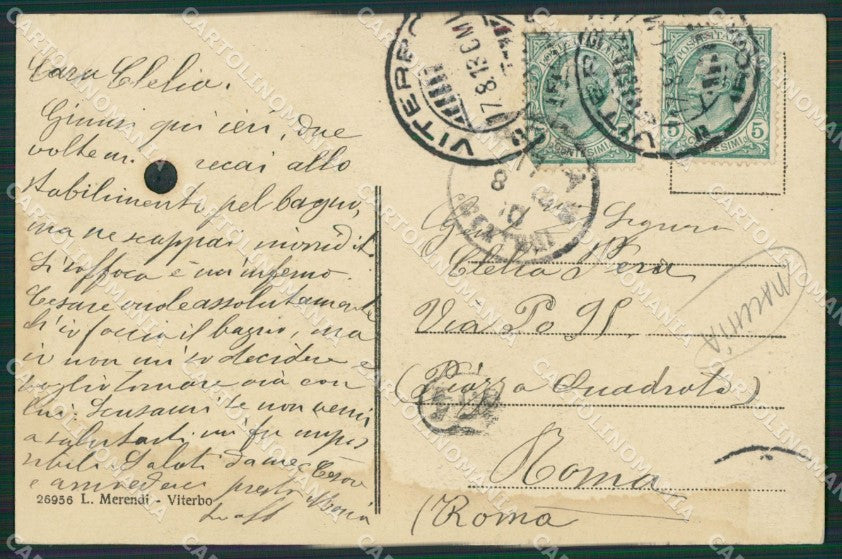 Cara Clelia.
Giunsi qui ieri, due
volte mi recai allo
stabilimento pel bagno,
ma ne scappai inorridita
Si soffoca è un inferno
Cesare vuole assolutamente
ch'io faccia il bagno, ma
io non mi so decidere e
voglio tornare via con
lui. Scusami se non venni
a salutarti mi fu impos
sibile Saluti da me e Cesare
e arrivederci presto Maria
26956 L. Merendi - Viterbo
VITERBO
17.8.13.6M
VITERBO
POSTE ITALIANE
CENTESIMI
5 CENTESIMI 5
Signora
Clelia Pera
Via Po 95
(Piazza Quadrata)
Roma
(Roma